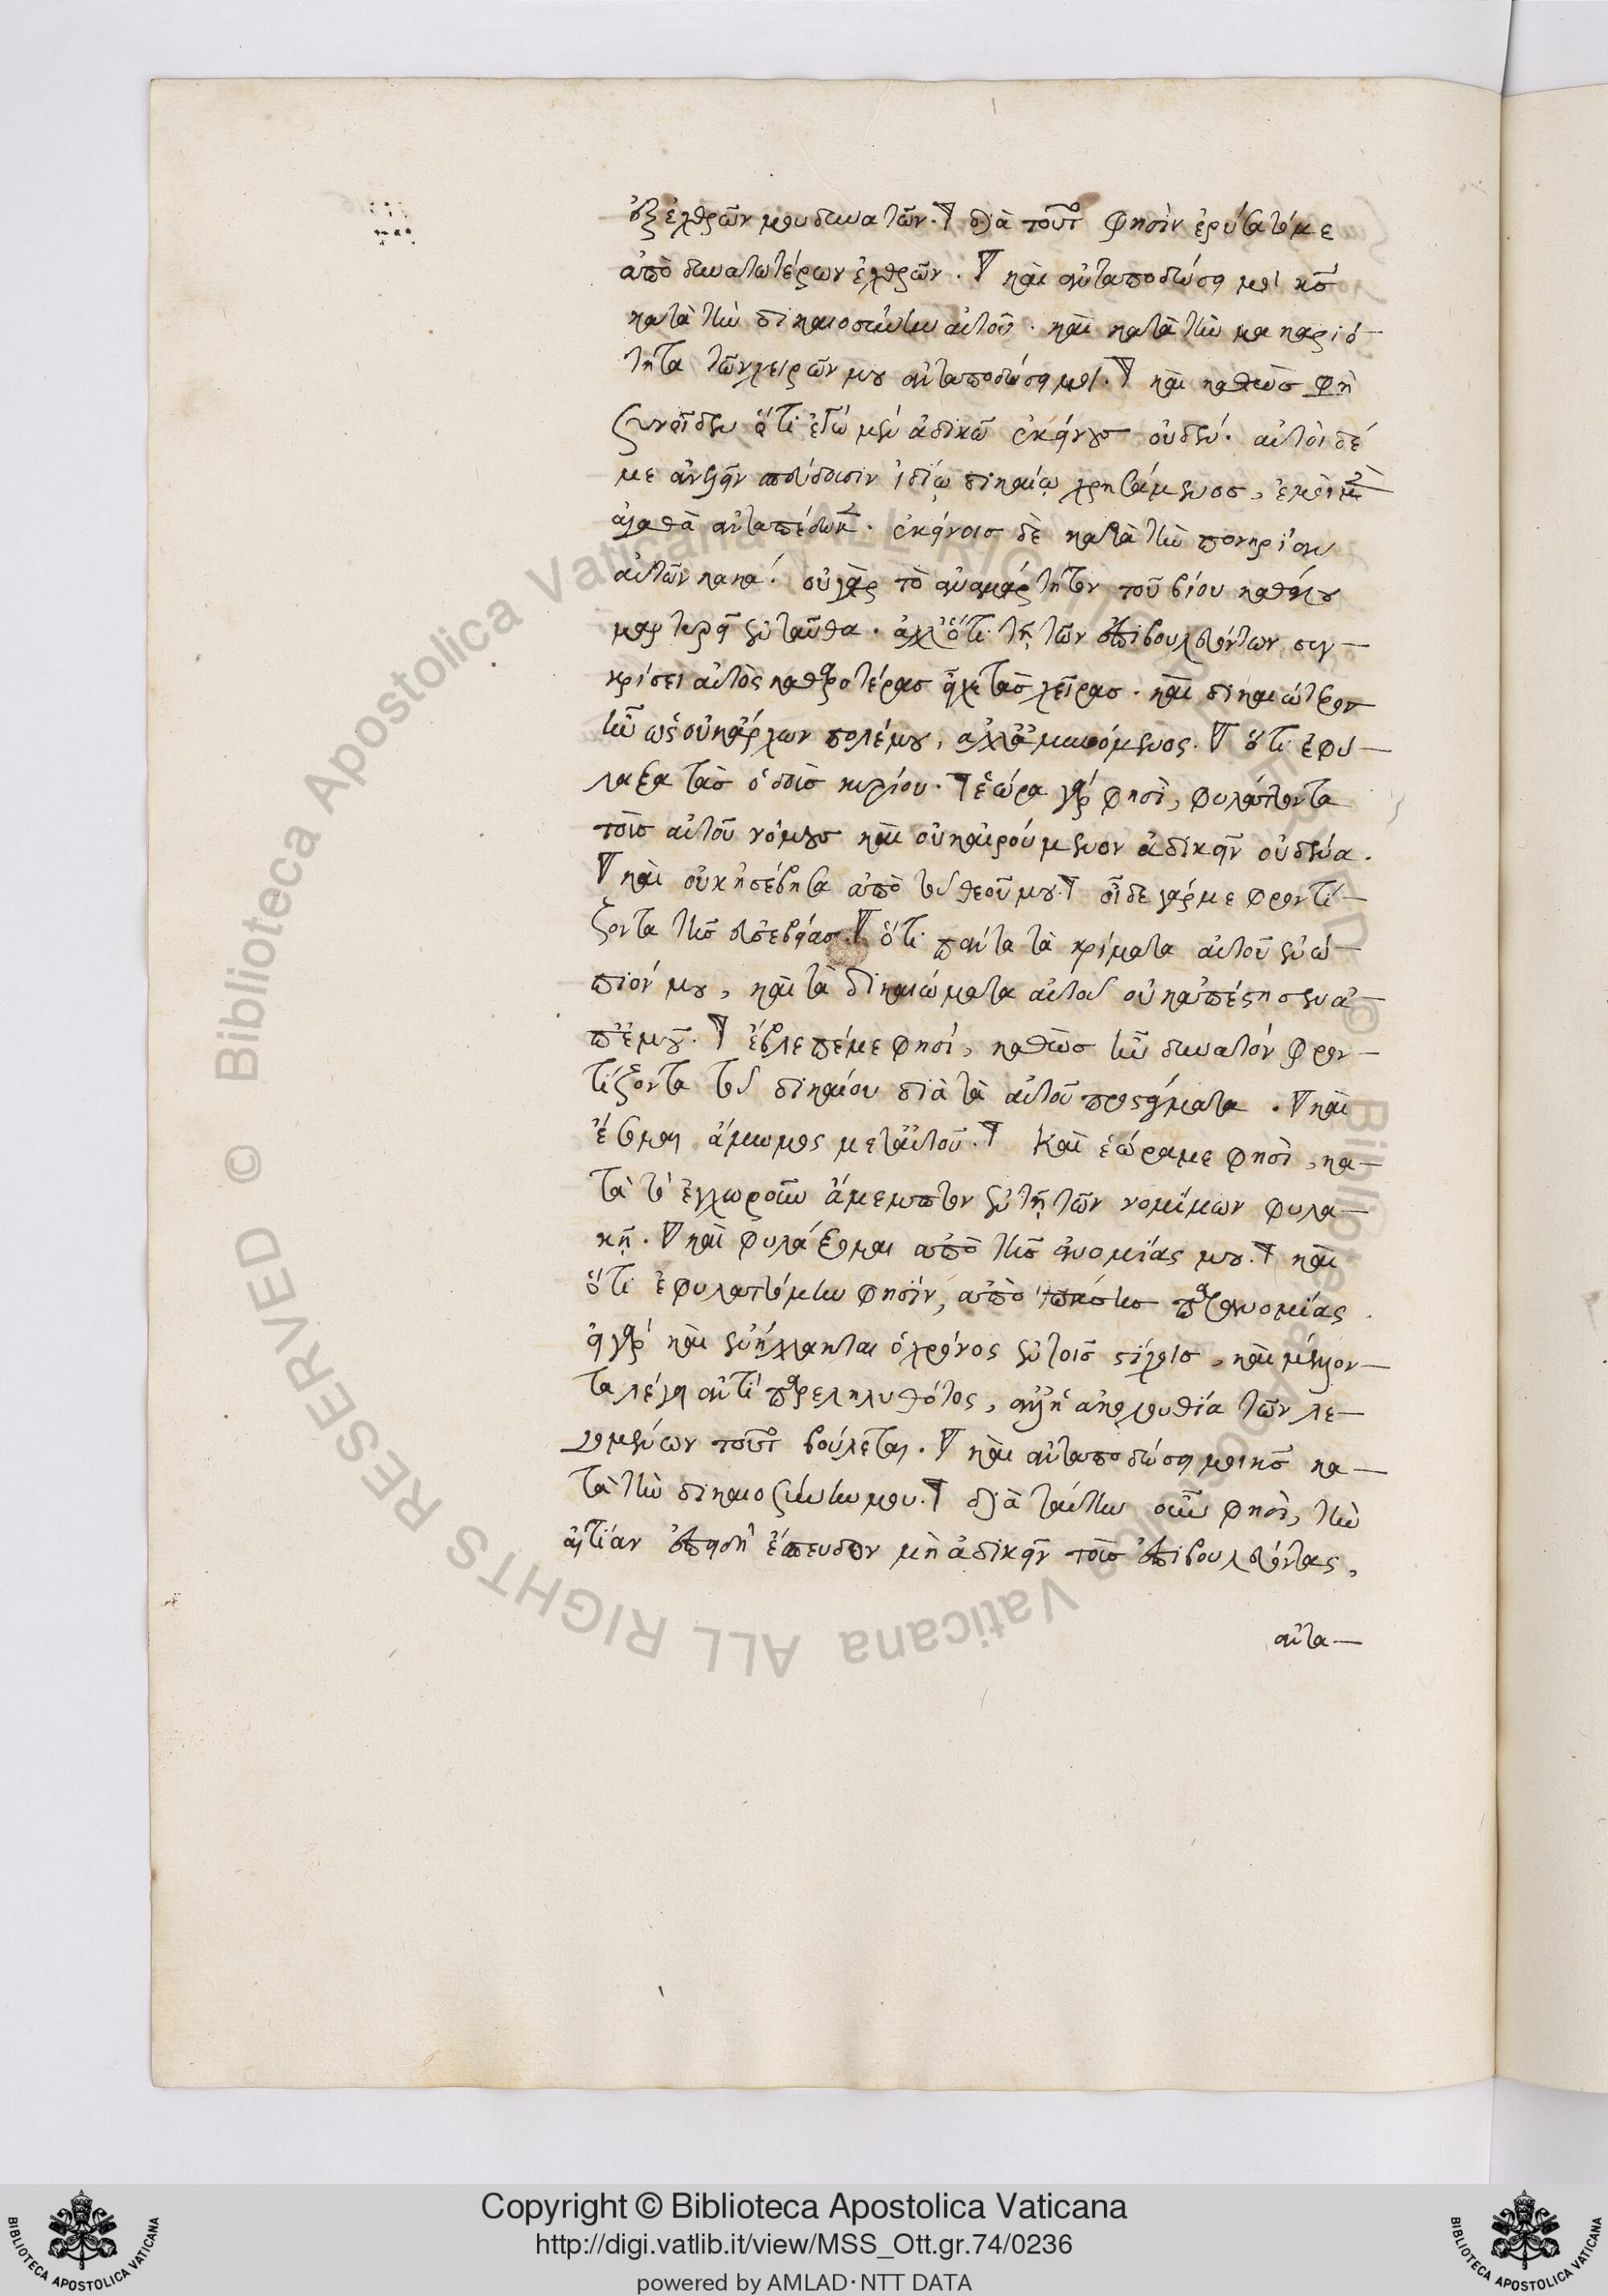 ἐξ ἐχθρῶν μου δυνατῶν. διὰ τοῦτο φησὶν ἐρύσατό με
ἀπὸ δυνατωτέρων ἐχθρῶν. καὶ ἀνταποδώσει μοι κς
κατὰ τὴν δικαιοσύνην αὐτοῦ. καὶ κατὰ τὴν καθαριό-
τητα τῶν χειρῶν μου ἀνταποδώσει μοι. καὶ καθὼς φὴ
συνοῖδεν ὅτι ἐγὼ μὲν ἀδικῶ ἐκείνους οὐδέν. αὐτοὶ δέ
με ἀνελεῖν σπεύδουσιν ἰδίω δικαίω χρησάμενος, ἐμοὶ μὲν
ἀγαθὰ ἀνταπέδωκε. ἐκείνοις δὲ κατὰ τὴν πονηρίαν
αὐτῶν κακά. οὐ γὰρ τὸ ἀναμάρτητον τοῦ βίου καθόλου
μαρτυρεῖ ἐνταῦθα. ἀλλ' ὅτι τῇ τῶν ἐπιβουλευόντων συγ-
κρίσει αὐτὸς καθαροτέρας εἶχε τὰς χεῖρας. καὶ δικαιώτερον
ἦν ὡς οὐκ ἄρχων πολέμου, ἀλλ' ἀμυνόμενος. ὅτι ἐφύ-
λαξα τὰς ὁδοὺς κυρίου. ἑώρα γάρ φησὶ, φυλάττοντα
τοὺς αὐτοῦ νόμους καὶ οὐκ αἱρούμενον ἀδικεῖν οὐδένα.
καὶ οὐκ ἠσέβησα ἀπὸ τοῦ θεοῦ μου. οἶδε γάρ με φροντί-
ζοντα τῆς εὐσεβείας. ὅτι πάντα τὰ κρίματα αὐτοῦ ἐνώ-
πιόν μου, καὶ τὰ δικαιώματα αὐτοῦ οὐκ ἀπέστησεν ἀ-
π' ἐμοῦ. ἔβλεπέ με φησί, καθὼς ἦν δυνατόν φρον-
τίζοντα τοῦ δικαίου διὰ τὰ αὐτοῦ προστάγματα. καὶ
ἔσομαι ἄμωμος μετ' αὐτοῦ. Καὶ ἑώρα με φησὶ, κα-
τὰ τὸ ἐγχωροῦν ἄμεμπτον ἐν τῇ τῶν νομίμων φυλα-
κῇ. καὶ φυλάξομαι ἀπὸ τῆς ἀνομίας μου. καὶ
ὅτι ἐφυλαττόμην φησίν, ἀπὸ πάσης παρανομίας
εἰ γάρ καὶ ἐνήλλακται ὁ χρόνος ἐν τοῖς στίχοις, καὶ μέλλον-
τα λέγει ἀντί παρεληλυθότος, ἀλλ' ἡ ἀκολουθία τῶν λε-
γομένων τοῦτο βούλεται. καὶ ἀνταποδώσει μοι κς κα-
τὰ τὴν δικαιοσύνην μου. διὰ ταύτην οὖν φησὶ, τὴν
αἰτίαν ἐπειδὴ ἔσπευδον μὴ ἀδικεῖν τοὺς ἐπιβουλεύοντας,
ἀντα-
Copyright © Biblioteca Apostolica Vaticana
http://digi.vatlib.it/view/MSS_Ott.gr.74/0236
powered by AMLAD·NTT DATA